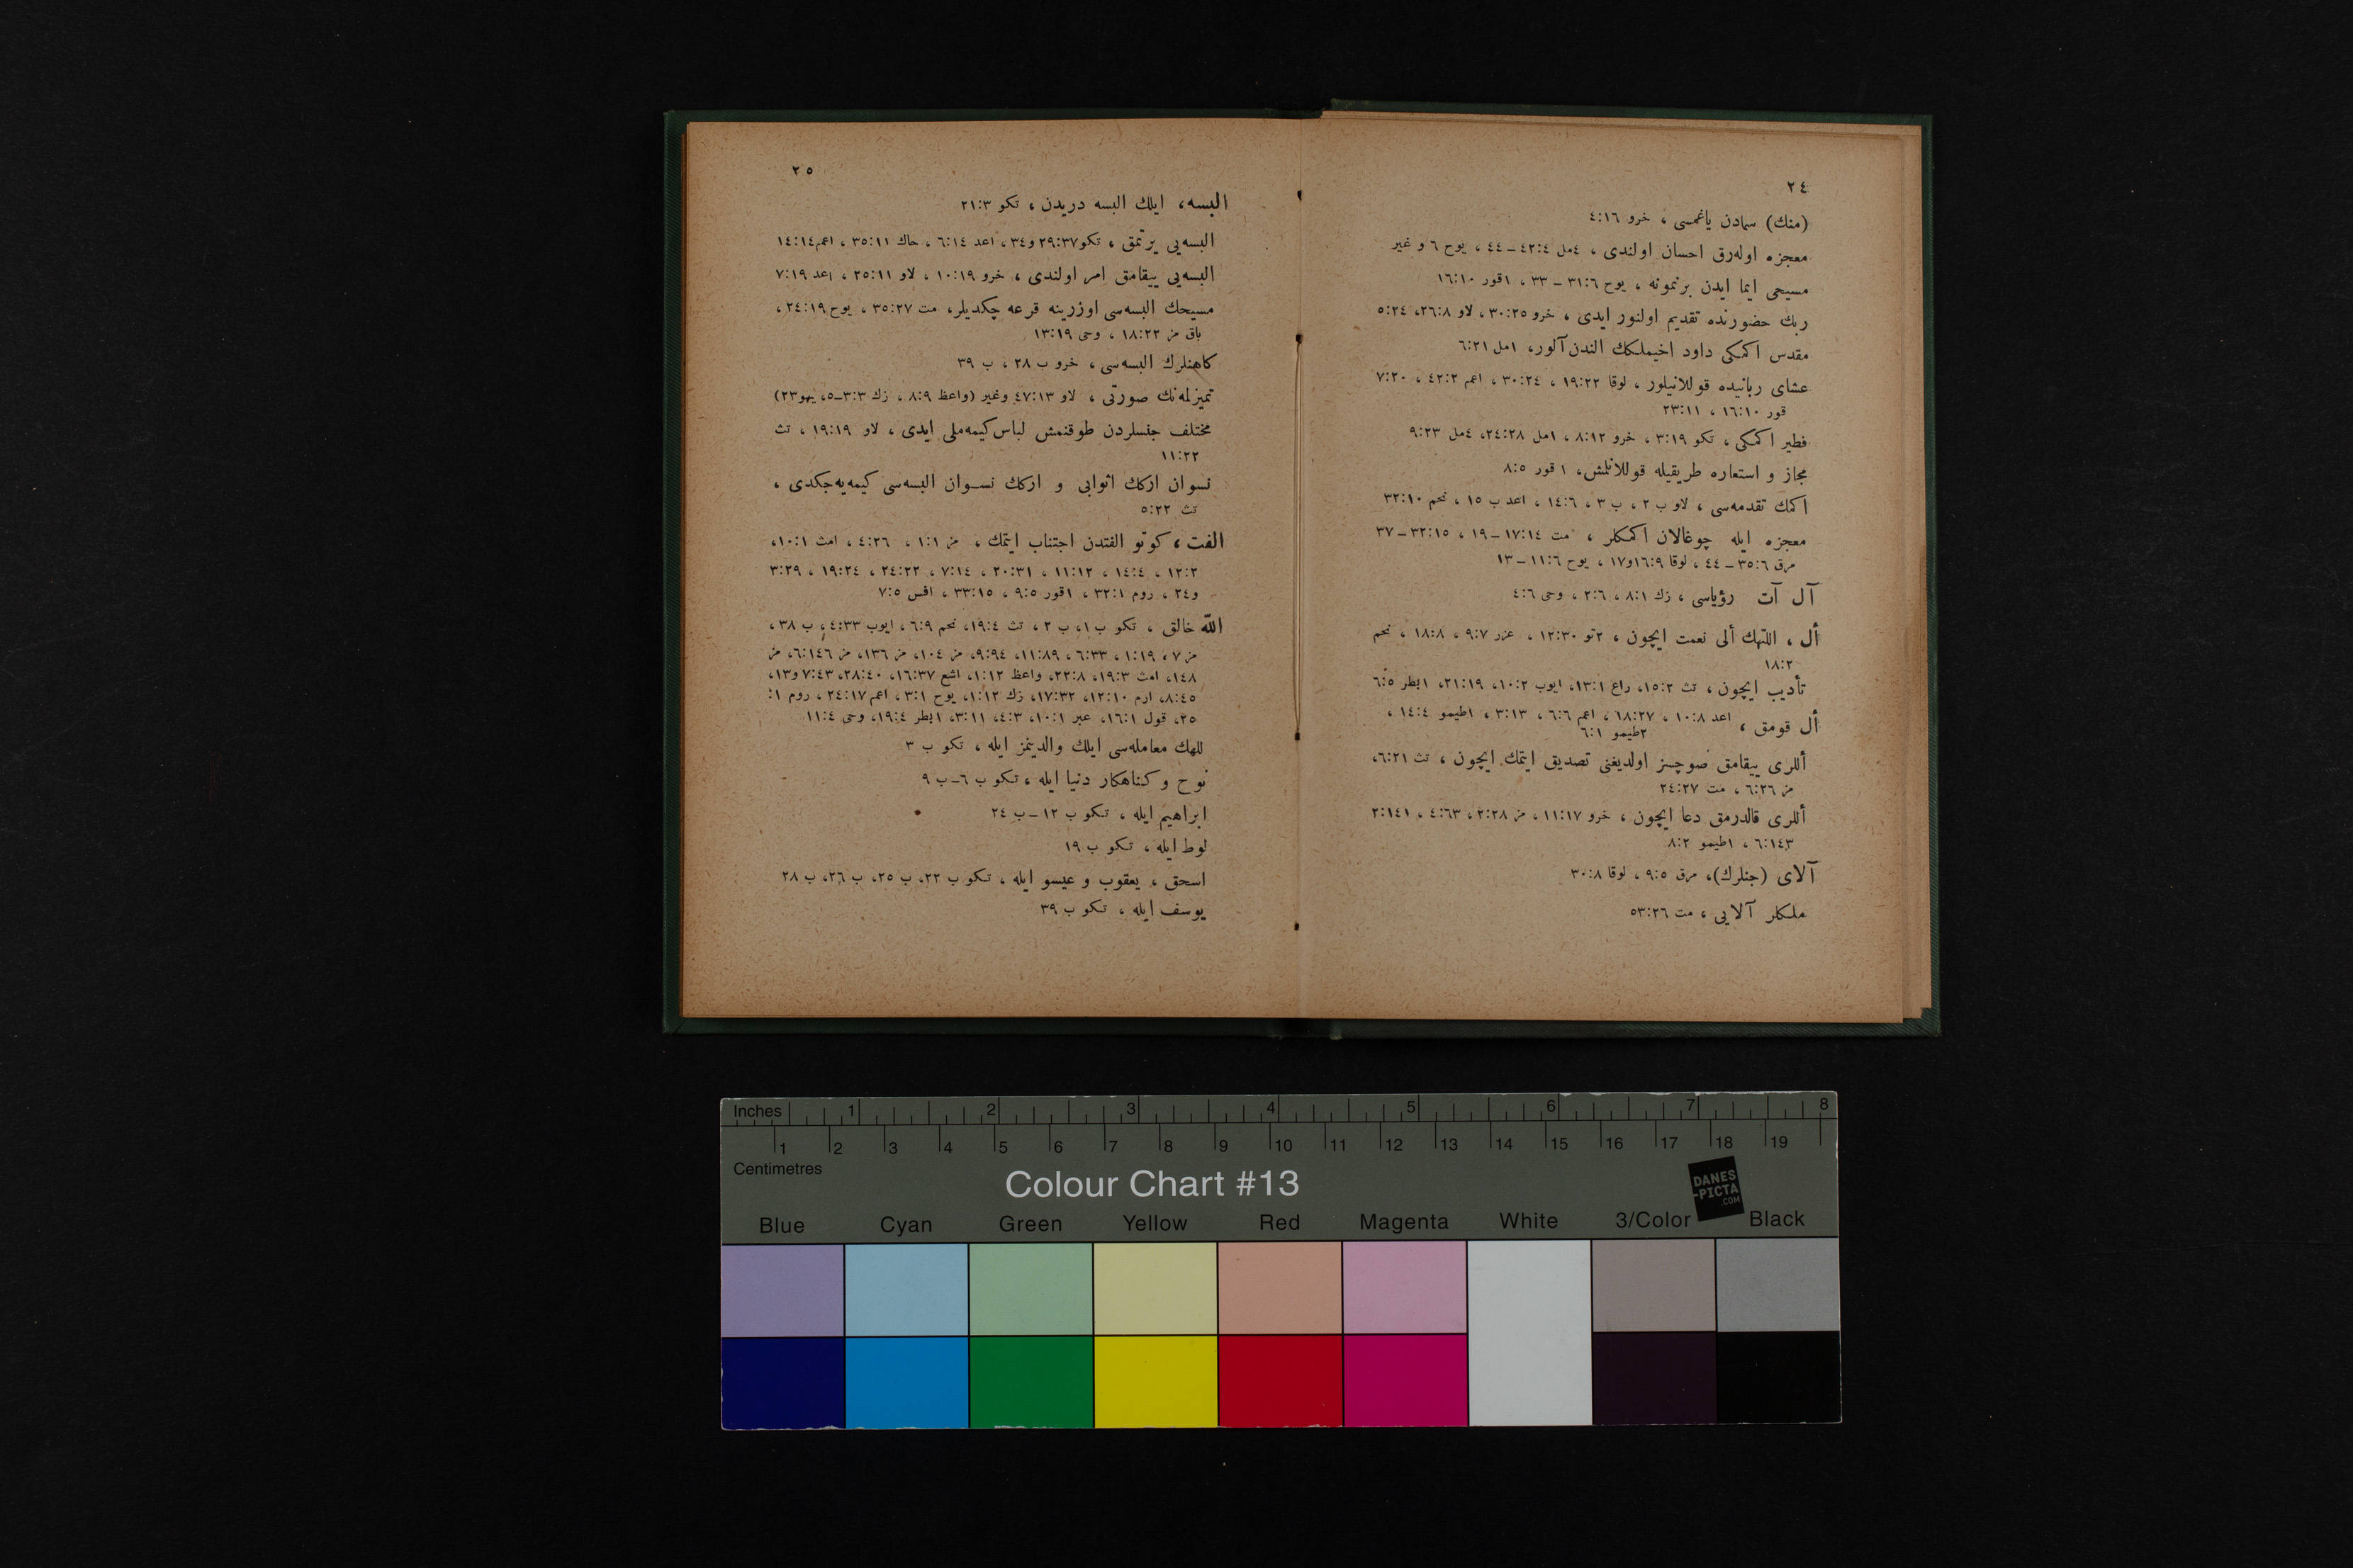 ٢٤
(منك) سمادن ياغمسی ، خرو ٤:١٦
معجزه اوله‌رق احسان اولندی ، ٤مل ٤٢:٤ــ٤٤ ، يوح ٦ و غير
مسيحی ايما ايدن برنمونه ، يوح ٣١:٦ــ٣٣ ، ١قور ١٦:١٠
ربك حضورنده تقديم اولنور ايدی ، خرو ٣٠:٢٥ ، لاو ٢٦:٨، ٥:٢٤
مقدس اكمكی داود اخيملكك الندن آلور، ١مل ٦:٢١
عشای ربانيده قوللانيلور ، لوقا ١٩:٢٢ ، ٣٠:٢٤ ، اعم ٤٢:٢ ، ٧:٢٠
قور ١٦:١٠ ، ٢٣:١١
فطير اكمكی ، تكو ٣:١٩ ، خرو ٨:١٢ ، ١مل ٢٤:٢٨، ٤مل ٩:٢٣
مجاز و استعاره طريقيله قوللانلمش، ١ قور ٨:٥
اكمك تقدمه‌سی ، لاو ب ٢ ، ب ٣ ، ١٤:٦ ، اعد ب ١٥ ، نحم ٣٢:١٠
معجزه ايله چوغالان اكمكلر ، مت ١٧:١٤ــ١٩ ، ٣٢:١٥ــ٣٧
مرق ٣٥:٦ــ٤٤ ، لوقا ١٦:٩و١٧ ، يوح ١١:٦ــ١٣
آل آت رؤياسی ، زك ٨:١ ، ٢:٦ ، وحی ٤:٦
أل ، اللٰهك ألی نعمت ايچون ، ٢تو ١٢:٣٠ ، عزر ٩:٧ ، ١٨:٨ ، نحم
١٨:٢
تأديب ايچون ، تث ١٥:٢، راع ١٣:١، ايوب ١٠:٢، ٢١:١٩، ١بطر ٦:٥
أل قومق ، اعد ١٠:٨ ، ١٨:٢٧ ، اعم ٦:٦ ، ٣:١٣ ، ١طيمو ١٤:٤ ،
٢طيمو ٦:١
أللری ييقامق صوچسز اولديغنی تصديق ايتمك ايچون ، تث ٦:٢١،
مز ٦:٢٦ ، مت ٢٤:٢٧
أللری قالدرمق دعا ايچون ، خرو ١١:١٧ ، مز ٢:٢٨ ، ٤:٦٣ ، ٢:١٤١
٦:١٤٣ ، ١طيمو ٨:٢
آلای (جنلرك)، مرق ٩:٥ ، لوقا ٣٠:٨
ملكلر آلايی ، مت ٥٣:٢٦
٢٥
البسه، ايلك البسه دريدن ، تكو ٢١:٣
البسه‌يی يرتمق ، تكو ٢٩:٣٧ و٣٤ ، اعد ٦:١٤ ، حاك ٣٥:١١ ، اعم ١٤:١٤
البسه‌يی ييقامق امر اولندی ، خرو ١٠:١٩ ، لاو ٢٥:١١ ، اعد ٧:١٩
مسيحك البسه‌سی اوزرينه قرعه چكديلر، مت ٣٥:٢٧ ، يوح ٢٤:١٩ ،
باق مز ١٨:٢٢ ، وحی ١٣:١٩
كاهنلرك البسه‌سی ، خرو ب ٢٨ ، ب ٣٩
تميزلمه‌نك صورتی ، لاو ٤٧:١٣ وغير (واعظ ٨:٩ ، زك ٣:٣ــ٥، يهو٢٣)
مختلف جنسلردن طوقنمش لباس كيمه‌ملی ايدی ، لاو ١٩:١٩ ، تث
١١:٢٢
نسوان ارکك اثوابی و ارکك نسوان البسه‌سی كيمه‌يه‌جكدی ،
تث ٥:٢٢
الفت ، كوتو الفتدن اجتناب ايتمك ، مز ١:١ ، ٤:٢٦ ، امث ١٠:١،
١٢:٢ ، ١٤:٤ ، ١١:١٢ ، ٢٠:٣١ ، ٧:١٤ ، ٢٤:٢٢ ، ١٩:٢٤ ، ٣:٢٩
و٢٤ ، روم ٣٢:١ ، ١قور ٩:٥ ، ٣٣:١٥ ، افس ٧:٥
اللّٰه خالق ، تكو ب ١، ب ٢ ، تث ١٩:٤، نحم ٦:٩ ، ايوب ٤:٣٣، ب ٣٨ ،
مز ٧ ، ١:١٩ ، ٦:٣٣ ، ١١:٨٩، ٩:٩٤، مز ١٠٤، مز ١٣٦، مز ٦:١٤٦، مز
١٤٨، امث ١٩:٣، ٢٢:٨، واعظ ١:١٢، اشع ١٦:٣٧، ٢٨:٤٠، ٧:٤٣ و١٣،
٨:٤٥، ارم ١٢:١٠، ١٧:٣٢، زك ١:١٢، يوح ٣:١ ، اعم ٢٤:١٧ ، روم ١:
٢٥، قول ١٦:١، عبر ١٠:١، ٤:٣، ٣:١١، ١بطر ١٩:٤، وحی ١١:٤
للهك معامله‌سی ايلك والدينمز ايله ، تكو ب ٣
نوح و كناهكار دنيا ايله ، تكو ب ٦ــب ٩
ابراهيم ايله ، تكو ب ١٢ــب ٢٤
لوط ايله ، تكو ب ١٩
اسحق ، يعقوب و عيسو ايله ، تكو ب ٢٢، ب ٢٥، ب ٢٦، ب ٢٨
يوسف ايله ، تكو ب ٣٩
Inches 1 2 3 4 5 6 7 8
1 2 3 4 5 6 7 8 9 10 11 12 13 14 15 16 17 18 19
Centimetres
Colour Chart #13
DANES
-PICTA
.COM
Blue Cyan Green Yellow Red Magenta White 3/Color Black